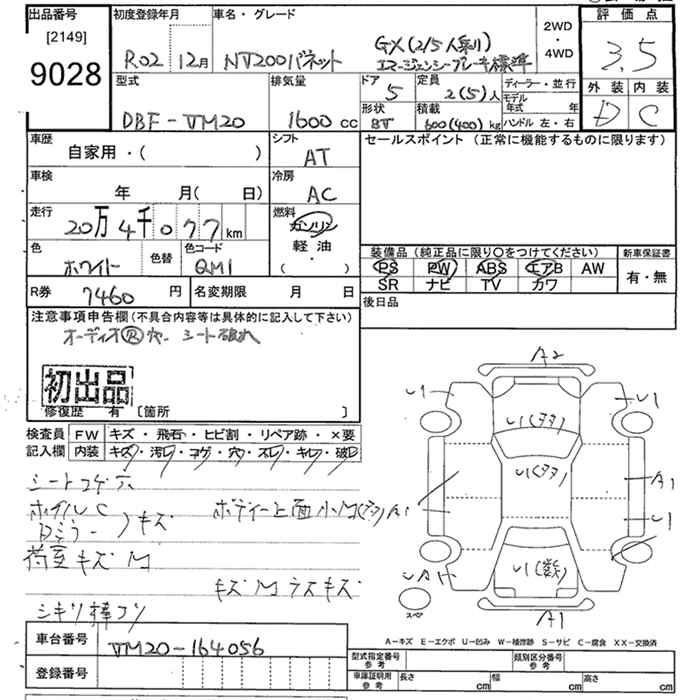 出品番号 初度登録年月 車名・グレード 2WD・4WD 評価点
[2149]
9028 R02 12月 NV200バネット GX(2/5人乗り) 3.5
エマージェンシーブレーキ標準
型式 排気量 ドア 定員 ディーラー・並行 外装 内装
5 2(5)人 モデル年式 年 D C
DBF-VM20 1600cc 形状 積載 ハンドル 左・右
BV 600(400)kg
車歴 シフト セールスポイント(正常に機能するものに限ります)
自家用・( ) AT
車検 冷房
年 月( 日) AC
走行 燃料
20万4千077km ガソリン
軽油
( ・ )
色 色替 色コード 装備品(純正品に限り○をつけてください) 新車保証書
ホワイト QM1 PS PW ABS エアB AW 有・無
SR ナビ TV カワ
R券 7460円 名変期限 月 日 後日品
注意事項申告欄(不具合内容等は具体的に記入して下さい)
オーディオ㊋穴 シート破れ
初出品
修復歴 有 [箇所 ]
検査員 FW キズ・飛石・ヒビ割・リペア跡・×要
記入欄 内装 キズ・汚レ・コゲ・穴・スレ・キレ・破レ
シートコゲ穴
ホイルC
Dミラー )キズ ボディー上面小M(多々)
荷室キズM
キズMラスキズ
シキリ棒コソ
A2
U1 U1
U1(多々)
U1(多々)
A1 A1
U1
U1(数)
A1
スペア
A-キズ E-エクボ U-凹み W-補修跡 S-サビ C-腐食 XX-交換済
車台番号 VM20-164056
登録番号
型式指定番号 参考 類別区分番号 参考
車庫証明用 参考 長さ cm 幅 cm 高さ cm